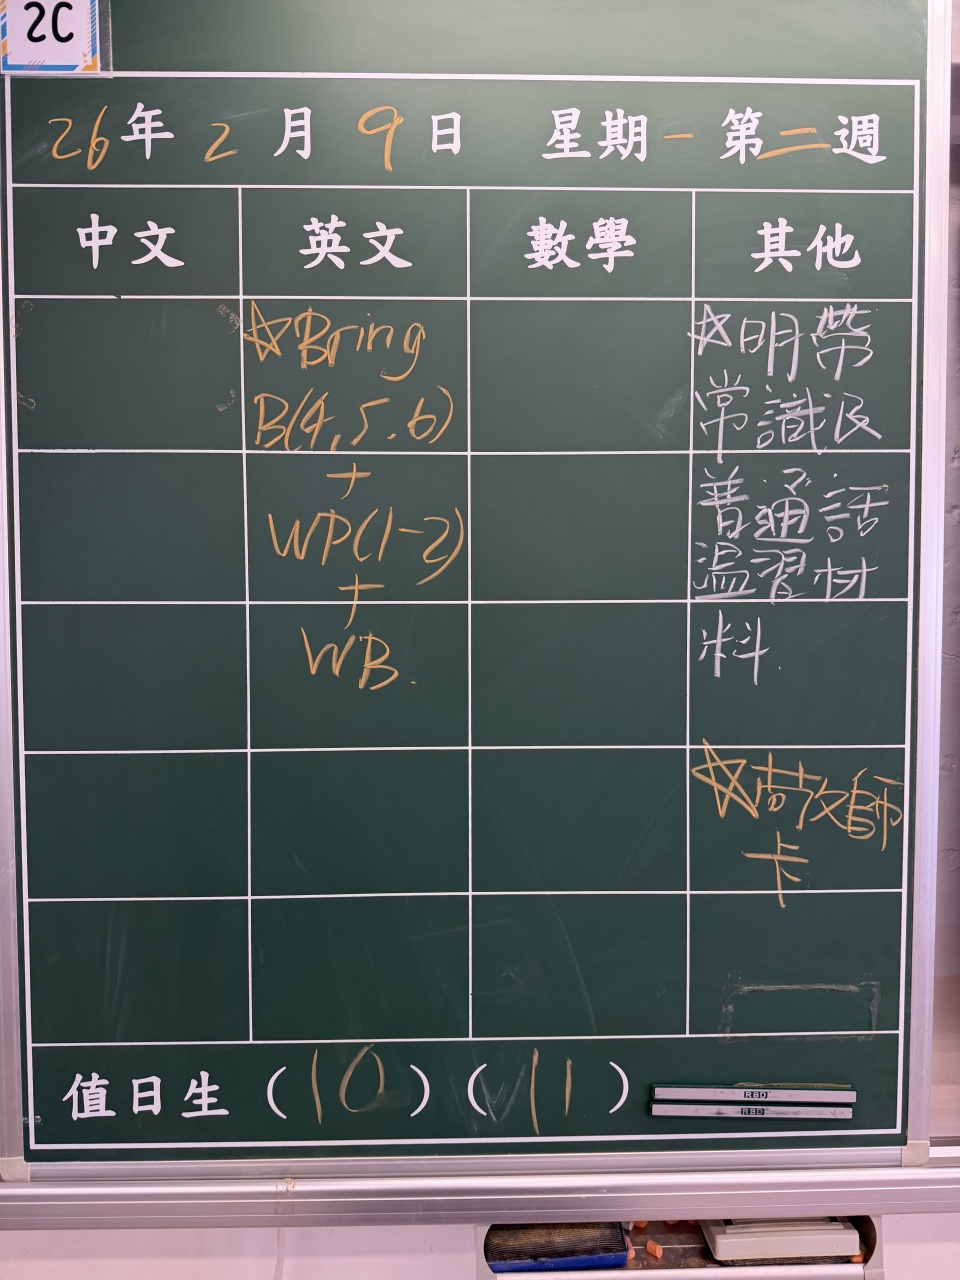 2C
26年2月9日 星期一 第二週
中文 英文 數學 其他
☆Bring
B(4,5.6)
+
WP(1-2)
+
WB.
☆明帶
常識及
普通話
温習材
料.
☆敬師
卡
值日生(10)(11)
RBD
RBD